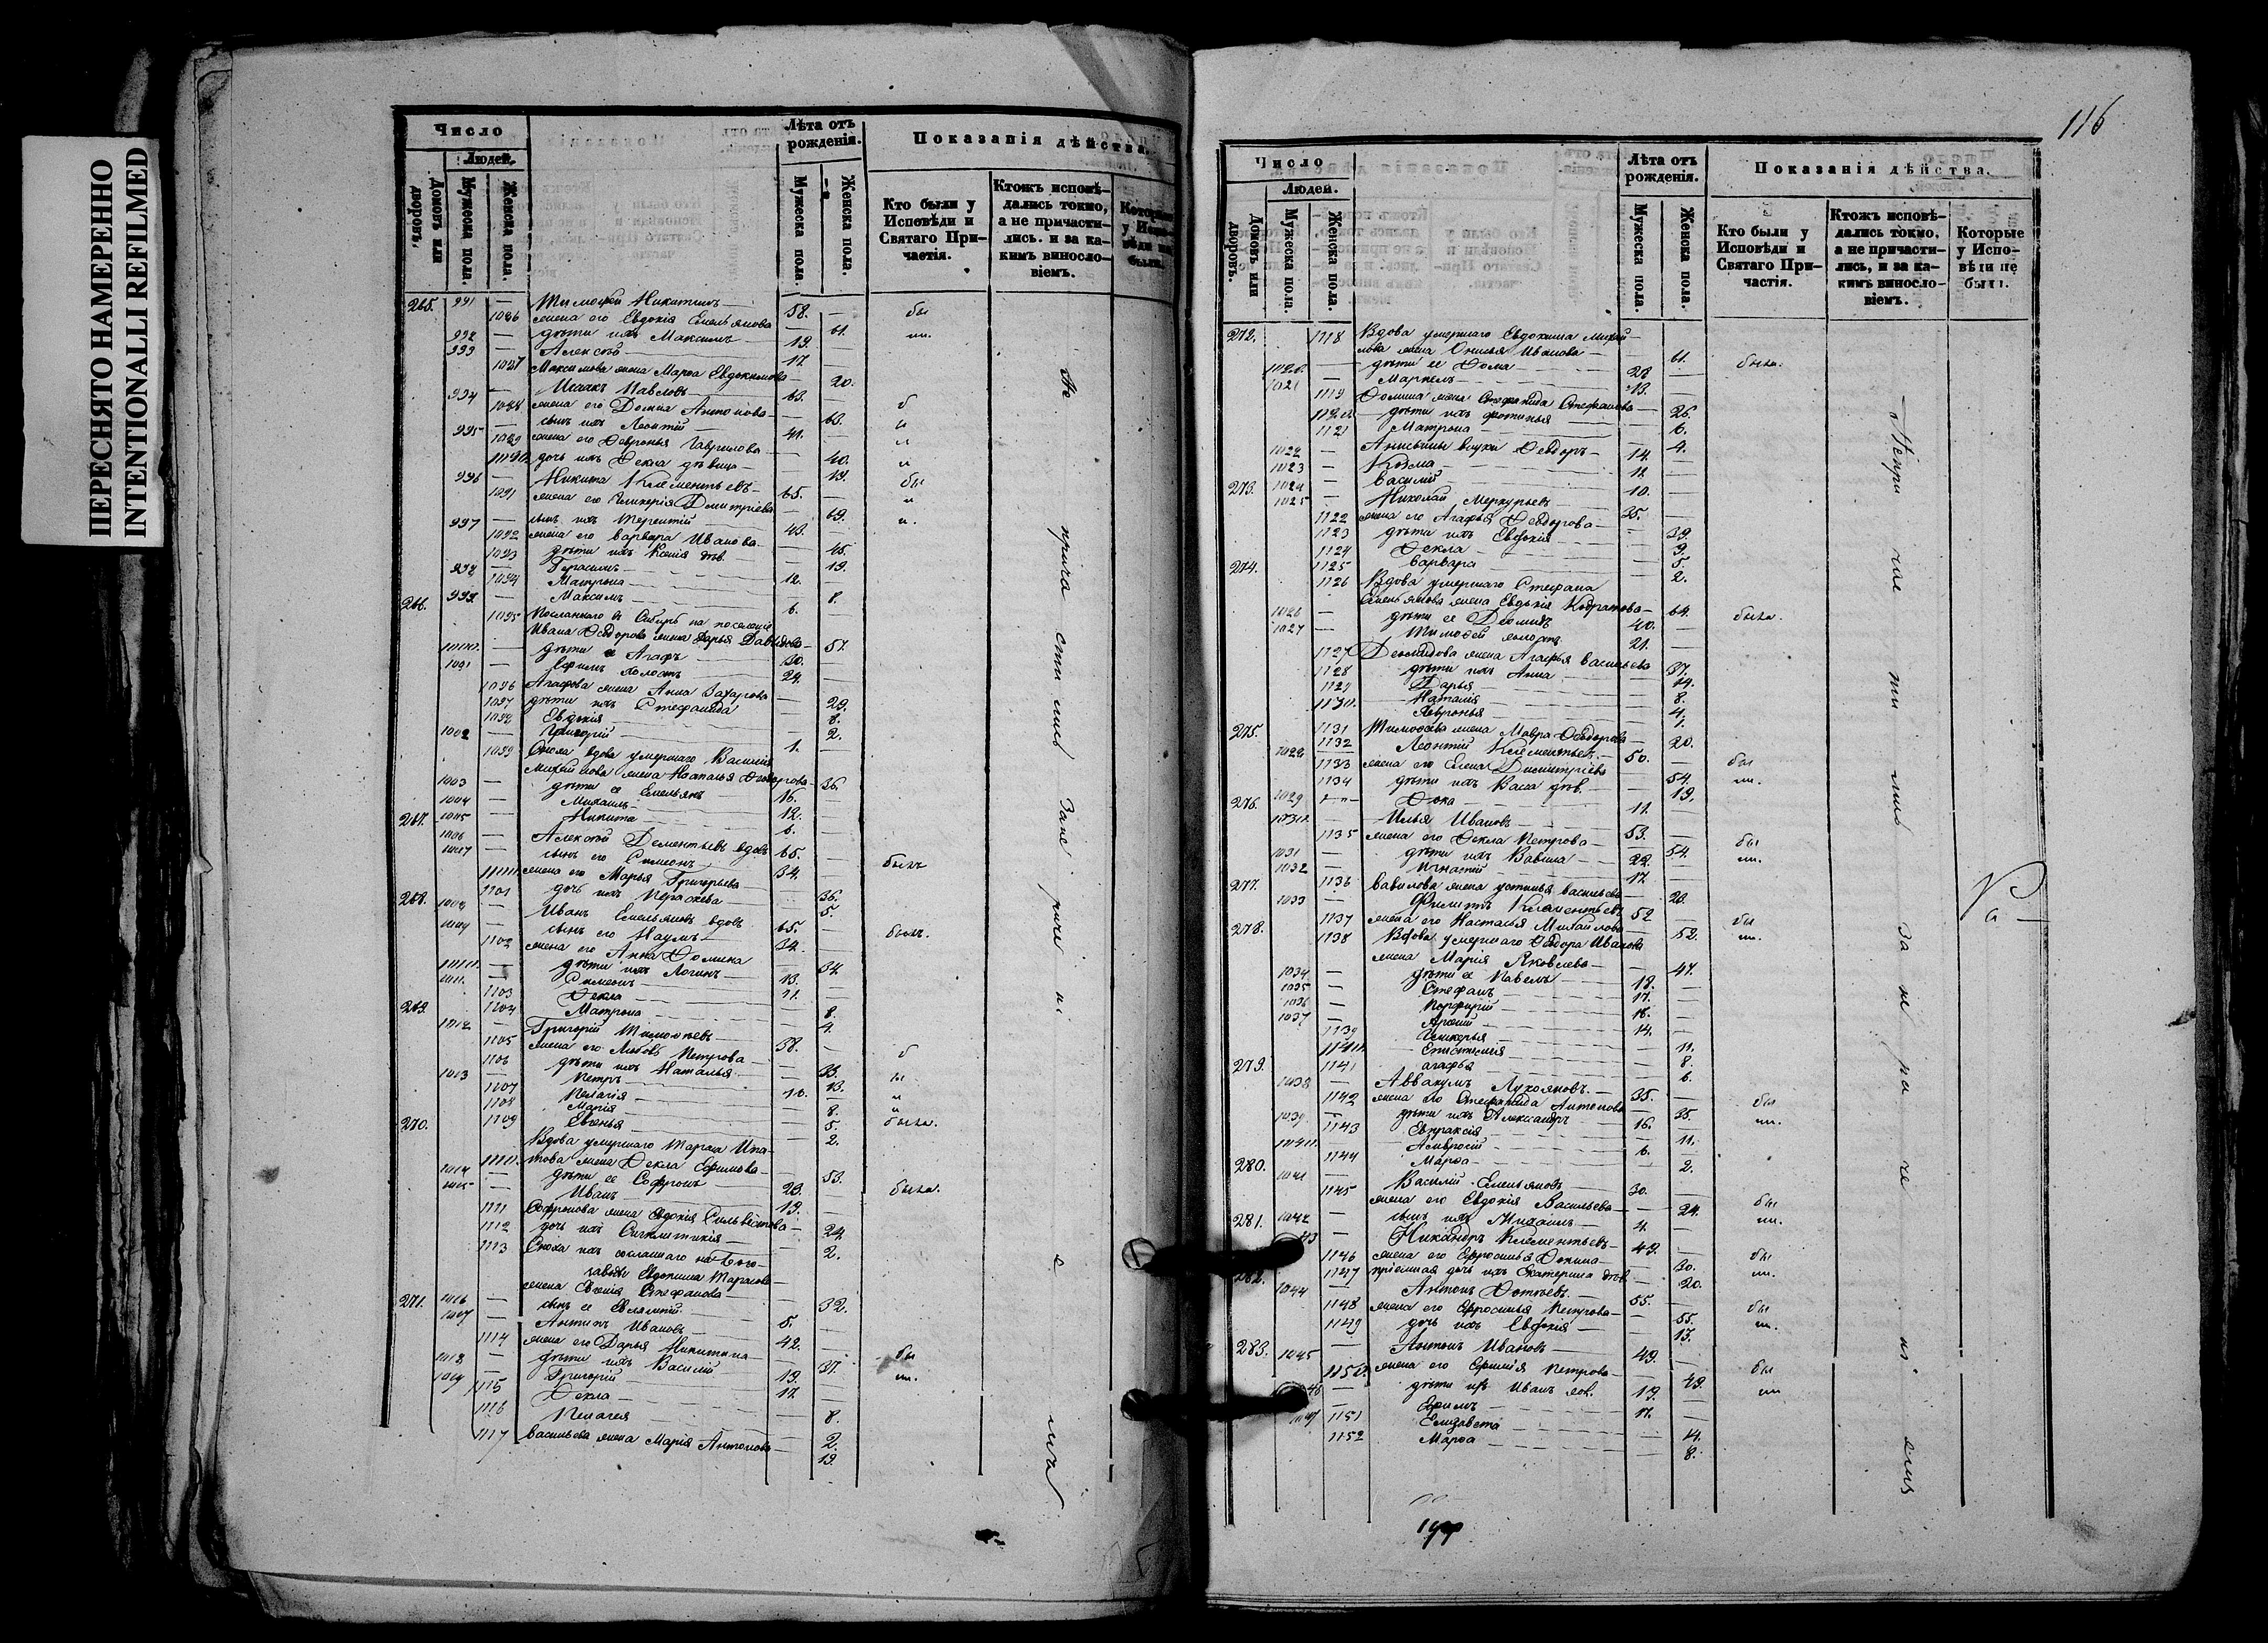 ПЕРЕСНЯТО НАМЕРЕННО
INTENTIONALLI REFILMED
Число
Людей.
Домовъ или дворовъ.
Мужеска пола.
Женска пола.
Лѣта отъ рожденія.
Мужеска пола.
Женска пола.
Показанія дѣйства.
Кто были у Исповѣди и Святаго Причастія.
Ктожъ исповѣдались токмо, а не причастились. и за какимъ винословіемъ.
Которые у Исповѣди не были.
265. 991 — Тимофей Никитинъ — 58. —
1086 жена его Евдокія Емельянова — 61.
992 — дѣти ихъ Максимъ — 19.
993 — Алексѣй — 17.
1087 Максимова жена Марѳа Евдокимова — 20.
994 — Исаакъ Павловъ — 63.
1088 жена его Домна Антонова — 63.
995 — сынъ ихъ Леонтій — 41.
1089 жена его Ѳевронья Гаврилова — 40.
1090 дочь ихъ Ѳекла дѣвица — 19.
996 — Никита Клементьевъ — 65.
1091 жена его Гликерія Димитріева — 69.
997 — сынъ ихъ Терентій — 43.
1092 жена его Варвара Иванова — 45.
1093 дѣти ихъ Ксенія дѣв. — 19.
998 — Герасимъ — 12.
1094 Матрона — 8.
999 — Максимъ — 6.
266. 1095 Посланнаго въ Сибирь на поселеніе
Ивана Ѳедорова жена Дарья Давыдова — 57.
1000 — дѣти ее Агафъ — 30.
1001 — Ефимъ холостъ — 24.
1096 Агафова жена Анна Захарова — 29.
1097 дѣти ихъ Стефанида — 8.
1098 Евдокія — 2.
1002 — Григорій — 1.
1099 Сноха вдова умершаго Василія
Михайлова жена Наталья Ѳедорова — 36.
1003 — дѣти ее Емельянъ — 16.
1004 — Михаилъ — 12.
1005 — Никита — 6.
267. 1006 — Алексѣй Дементьевъ вдовъ 65.
1007 — сынъ его Симеонъ — 34. былъ
1100 жена его Марья Григорьева — 36.
1101 дочь ихъ Параскева — 5.
268. 1008 — Иванъ Емельяновъ вдовъ 65.
1009 — сынъ его Наумъ — 34. былъ.
1102 жена его Анна Ѳомина — 34.
1010 — дѣти ихъ Логинъ — 13.
1011 — Симеонъ — 11.
1103 Ѳекла — 8.
1104 Матрона — 4.
269. 1012 — Григорій Тимоѳеевъ — 38.
1105 жена его Любовь Петрова — 33.
1106 дѣти ихъ Наталья — 13.
1013 — Петръ — 10.
1107 Пелагія — 8.
1108 Марія — 5.
1109 Евгенья — 2.
270. Вдова умершаго Тараса Ипатова
1110 жена Ѳекла Ефимова — 53. была.
1014 — дѣти ее Софронъ — 23.
1015 — Иванъ — 19.
1111 Софронова жена Евдокія Сильвестрова — 24.
1112 дочь ихъ Синклитикія — 2.
1113 Сноха ихъ
жена Евгенія Стефанова — 32.
1016 — сынъ ее Евлампій — 5.
271. 1017 — Антипъ Ивановъ — 42.
1114 жена его Дарья Никитина — 37.
1018 — дѣти ихъ Василій — 19.
1019 — Григорій — 12.
1115 Ѳекла — 8.
1116 Пелагея — 2.
1117 Васильева жена Марія Антонова — 19.
116
Число
Людей.
Домовъ или дворовъ.
Мужеска пола.
Женска пола.
Лѣта отъ рожденія.
Мужеска пола.
Женска пола.
Показанія дѣйства.
Кто были у Исповѣди и Святаго Причастія.
Ктожъ исповѣдались токмо, а не причастились, и за какимъ винословіемъ.
Которые у Исповѣди не были.
272. 1118 Вдова умершаго Евдокима Михайлова
жена Онисья Иванова — 61. была.
1020 — дѣти ее Ѳома — 28.
1021 — Маркелъ — 13.
1119 Ѳомина жена Стефанида Стефанова — 26.
1120 дѣти ихъ Фотинья — 6.
1121 Матрона — 4.
1022 — Анисьины внуки Ѳедоръ — 14.
1023 — Козма — 11.
1024 — Василій — 10.
273. 1025 — Николай Меркурьевъ 35.
1122 жена его Агафья Ѳедорова — 39.
1123 дѣти ихъ Евдокія — 9.
1124 Ѳекла — 5.
1125 Варвара — 2.
274. 1126 Вдова умершаго Стефана
Емельянова жена Евдокія Кодратова — 64. была.
1026 — дѣти ее Деомидъ 40.
1027 — Тимоѳей холостъ 21.
1127 Деомидова жена Агафья Васильева 37.
1128 дѣти ихъ Анна — 14.
1129 Дарья — 8.
1130 Наталія — 4.
Ѳевронья — 1.
1131 Тимоѳеева жена Мавра Ѳедорова — 20.
275. 1028 Леонтій Клементьевъ 50. бы
1133 жена его Елена Димитріева — 54. ли.
1134 дѣти ихъ Васса дѣв. — 19.
1029 — Ѳока — 11.
276. 1030 — Илья Ивановъ — 53. бы
1135 жена его Ѳекла Петрова — 54. ли.
1031 — дѣти ихъ Вавила — 22.
1032 — Игнатій — 17.
1136 Вавилова жена Устинья Васильева — 20.
277. 1033 — Филиппъ Клементьевъ 52. бы
1137 жена его Настасья Михайлова — 52. ли.
278. 1138 Вдова умершаго Ѳедора Иванова
жена Марія Яковлева — 47.
1034 — дѣти ее Павелъ — 19.
1035 — Стефанъ — 17.
1036 — Порфирій — 16.
1037 — Арсеній — 14.
1139 Гликерья — 11.
1140 Епистимія — 8.
1141 Агафья — 6.
279. 1038 — Аввакумъ Лукояновъ — 35. бы
1142 жена его Стефанида Антонова — 35. ли.
1039 — дѣти ихъ Александръ — 16.
1143 Евпраксія — 11.
1040 — Амвросій — 6.
1144 Марѳа — 2.
280. 1041 — Василій Емельяновъ — 30. бы
1145 жена его Евдокія Васильева — 24. ли.
1042 — сынъ ихъ Михаилъ — 4.
281. Никандръ Клементьевъ — 49. бы
1146 жена его Ефросинья Ѳомина — 30. ли.
1147 пріемная дочь ихъ Екатерина дѣв. 20.
282. 1044 — Антонъ Ѳотѣевъ — 55. бы
1148 жена его Ефросинья Петрова — 55. ли.
1149 дочь ихъ Евдокія — 13.
283. 1045 — Антонъ Ивановъ — 49. бы
1150 жена его Ефимія Петрова — 49. ли
дѣти ихъ Иванъ хол. 19.
1047 Ефимъ — 17.
1151 Елизавета — 14.
1152 Марѳа — 8.